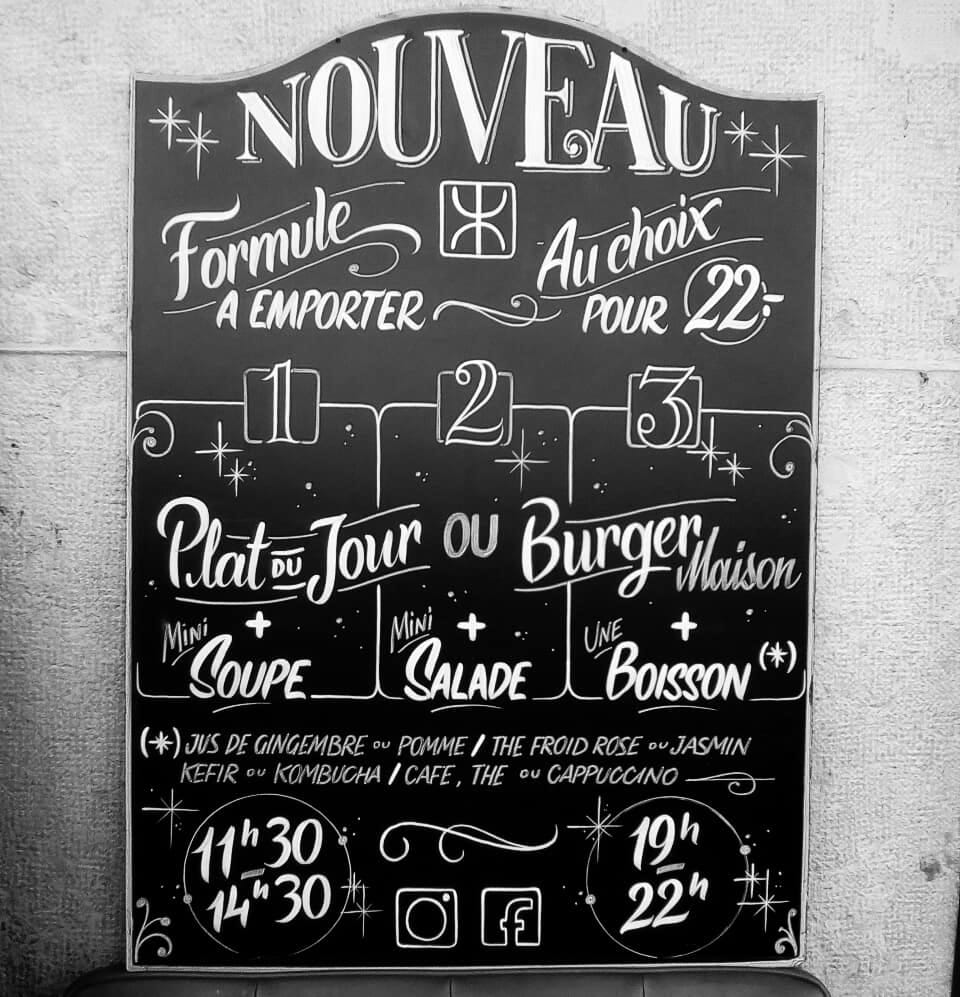 NOUVEAU
Formule
A EMPORTER
Au choix
POUR 22.-
1 2 3
Plat DU Jour OU Burger Maison
+ + +
MINI SOUPE MINI SALADE UNE BOISSON (*)
(*) JUS DE GINGEMBRE OU POMME / THE FROID ROSE OU JASMIN
KEFIR OU KOMBUCHA / CAFE, THE OU CAPPUCCINO
11h30
–
14h30
19h
–
22h